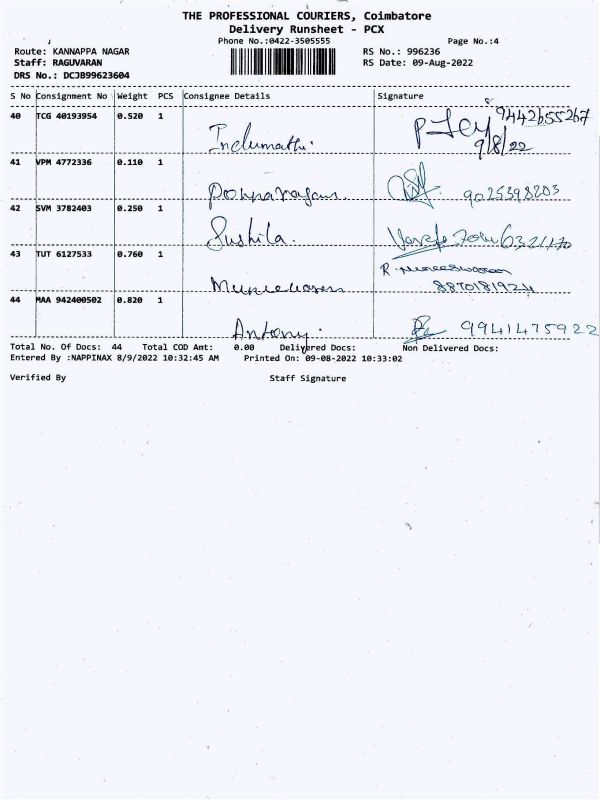 THE PROFESSIONAL COURIERS, Coimbatore
Delivery Runsheet - PCX
Phone No.:0422-3505555
Page No.:4
Route: KANNAPPA NAGAR
RS No.: 996236
Staff: RAGUVARAN
RS Date: 09-Aug-2022
DRS No.: DCJB99623604
S No Consignment No Weight PCS Consignee Details Signature
40 TCG 40193954 0.520 1
Indumathi. 9442655267
9/8/22
41 VPM 4772336 0.110 1
9025398203
42 SVM 3782403 0.250 1
Sushila.
43 TUT 6127533 0.760 1
R. Muneeswaran
8870181924
44 MAA 942400502 0.820 1
Antony. 9941475922
Total No. Of Docs: 44 Total COD Amt: 0.00 Delivered Docs: Non Delivered Docs:
Entered By :NAPPINAX 8/9/2022 10:32:45 AM Printed On: 09-08-2022 10:33:02
Verified By Staff Signature